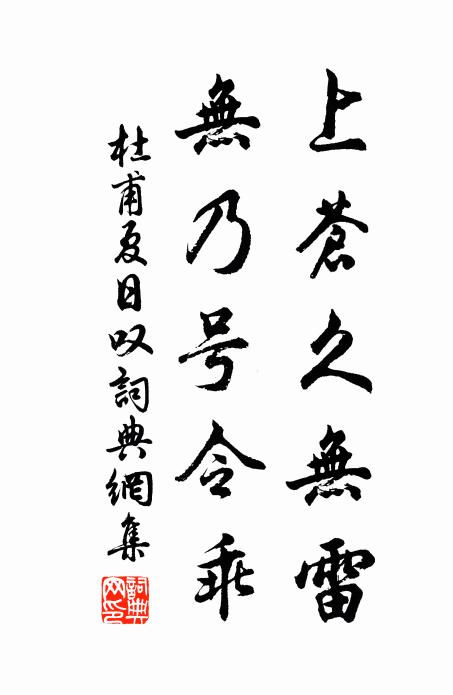 上蒼久無雷
無乃号令乖
杜甫夏日叹詞典網集
詞典網印